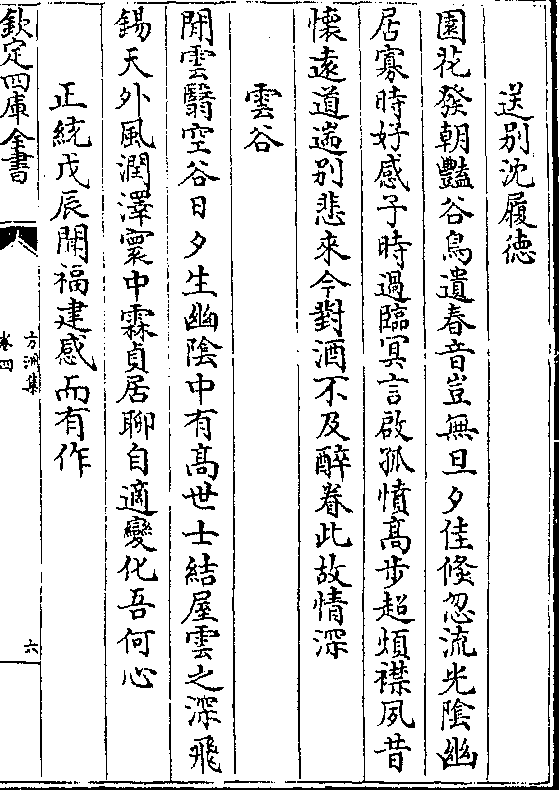 送别沈履徳
園花發朝豔谷鳥遺春音豈無旦夕佳倐忽流光陰幽
居寡時好感子時過臨冥言啟孤憤髙步超煩襟夙昔
懷逺道遄别悲來今對酒不及醉眷此故情深
雲谷
閒雲翳空谷日夕生幽陰中有髙世士結屋雲之深飛
錫天外風潤澤寰中霖貞居聊自適變化吾何心
正統戊辰聞福建感而有作
欽定四庫全書
方洲集
卷四
六